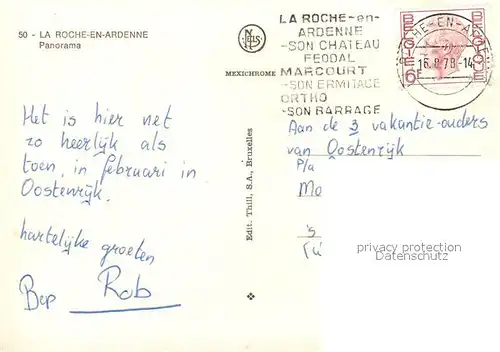 50 - LA ROCHE-EN-ARDENNE
Panorama
NELS
MEXICHROME
LA ROCHE-en-
ARDENNE
-SON CHATEAU
FEODAL
MARCOURT
-SON ERMITAGE
ORTHO
-SON BARRAGE
HE-EN-A
16.8.78-14
BELGIQUE
BELGIE
6F
Het is hier net
zo heerlijk als
toen, in februari in
Oostenrijk.
hartelijke groeten
Bep Rob
Edit. Thill, S.A., Bruxelles
Aan de 3 vakantie-ouders
van Oostenrijk
P/a
Mo
's
privacy protection
Datenschutz